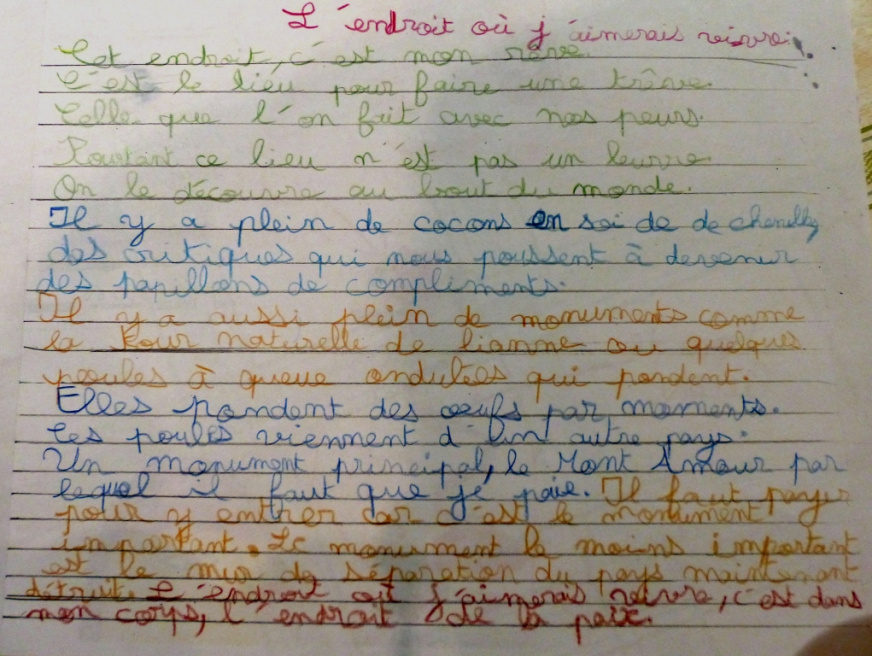 L'endroit où j'aimerais vivre.
Cet endroit, c'est mon rêve.
C'est le lieu pour faire une trêve.
Celle que l'on fait avec nos peurs.
Pourtant ce lieu n'est pas un leurre.
On le découvre au bout du monde.
Il y a plein de cocons en soi de de chenilles
des critiques qui nous poussent à devenir
des papillons de compliments.
Il y a aussi plein de monuments comme
la tour naturelle de lianne ou quelques
poules à queue ondulées qui pondent.
Elles pondent des œufs par moments.
Les poules viennent d'un autre pays.
Un monument principal, le Mont Amour par
lequel il faut que je paie. Il faut payer
pour y entrer car c'est le monument
important. Le monument le moins important
est le mur de séparation du pays maintenant
détruit. L'endroit où j'aimerais vivre, c'est dans
mon corps, l'endroit de la paix.